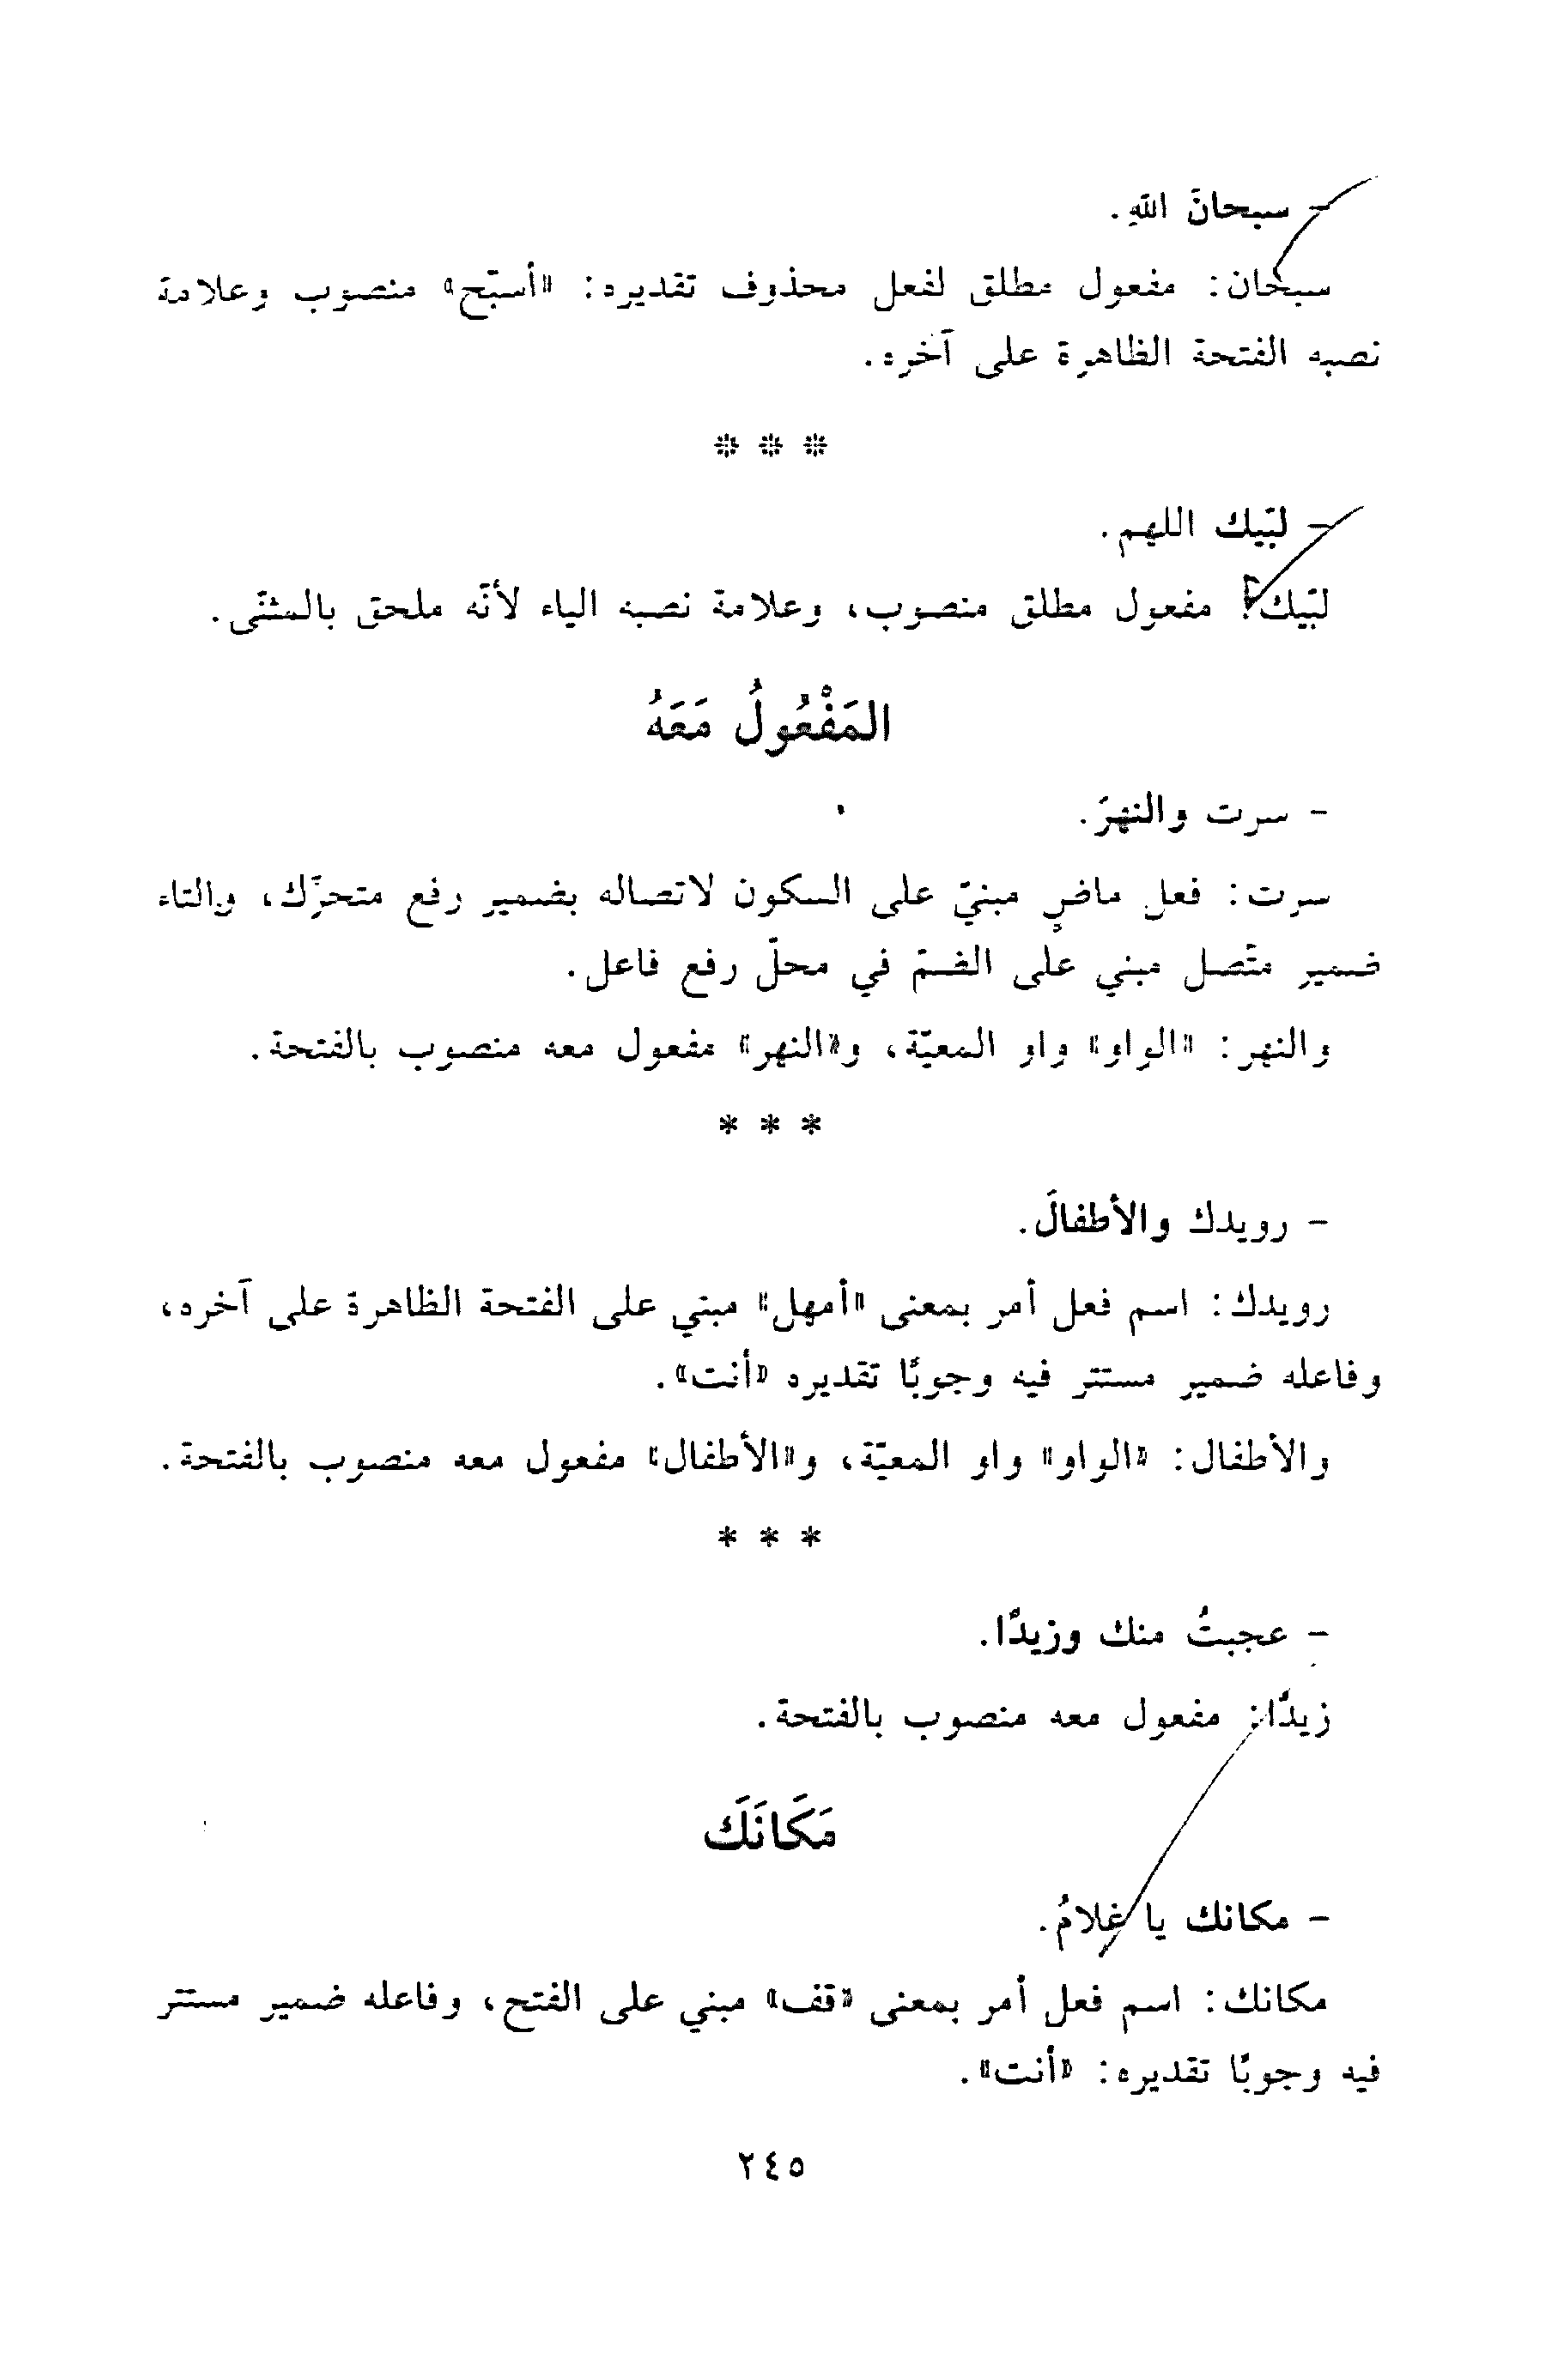 - سبحانَ اللهِ.
سبحان: مفعول مطلق لفعل محذوف تقديره: «أسبّح» منصوب وعلامة
نصبه الفتحة الظاهرة على آخره.
* * *
- لبّيك اللهم.
لبّيك: مفعول مطلق منصوب، وعلامة نصبه الياء لأنّه ملحق بالمثنّى.
المَفْعُولُ مَعَهُ
- سرت والنهرَ.
سرت: فعل ماضٍ مبنيّ على السكون لاتصاله بضمير رفع متحرّك، والتاء
ضمير متّصل مبني على الضمّ في محلّ رفع فاعل.
والنهر: «الواو» واو المعيّة، و«النهر» مفعول معه منصوب بالفتحة.
* * *
- رويدك والأطفالَ.
رويدك: اسم فعل أمر بمعنى «أمهل» مبني على الفتحة الظاهرة على آخره،
وفاعله ضمير مستتر فيه وجوبًا تقديره «أنت».
والأطفال: «الواو» واو المعيّة، و«الأطفال» مفعول معه منصوب بالفتحة.
* * *
- عجبتُ منك وزيدًا.
زيدًا: مفعول معه منصوب بالفتحة.
مَكَانَكَ
- مكانك يا غلامُ.
مكانك: اسم فعل أمر بمعنى «قف» مبني على الفتح، وفاعله ضمير مستتر
فيه وجوبًا تقديره: «أنت».
٢٤٥